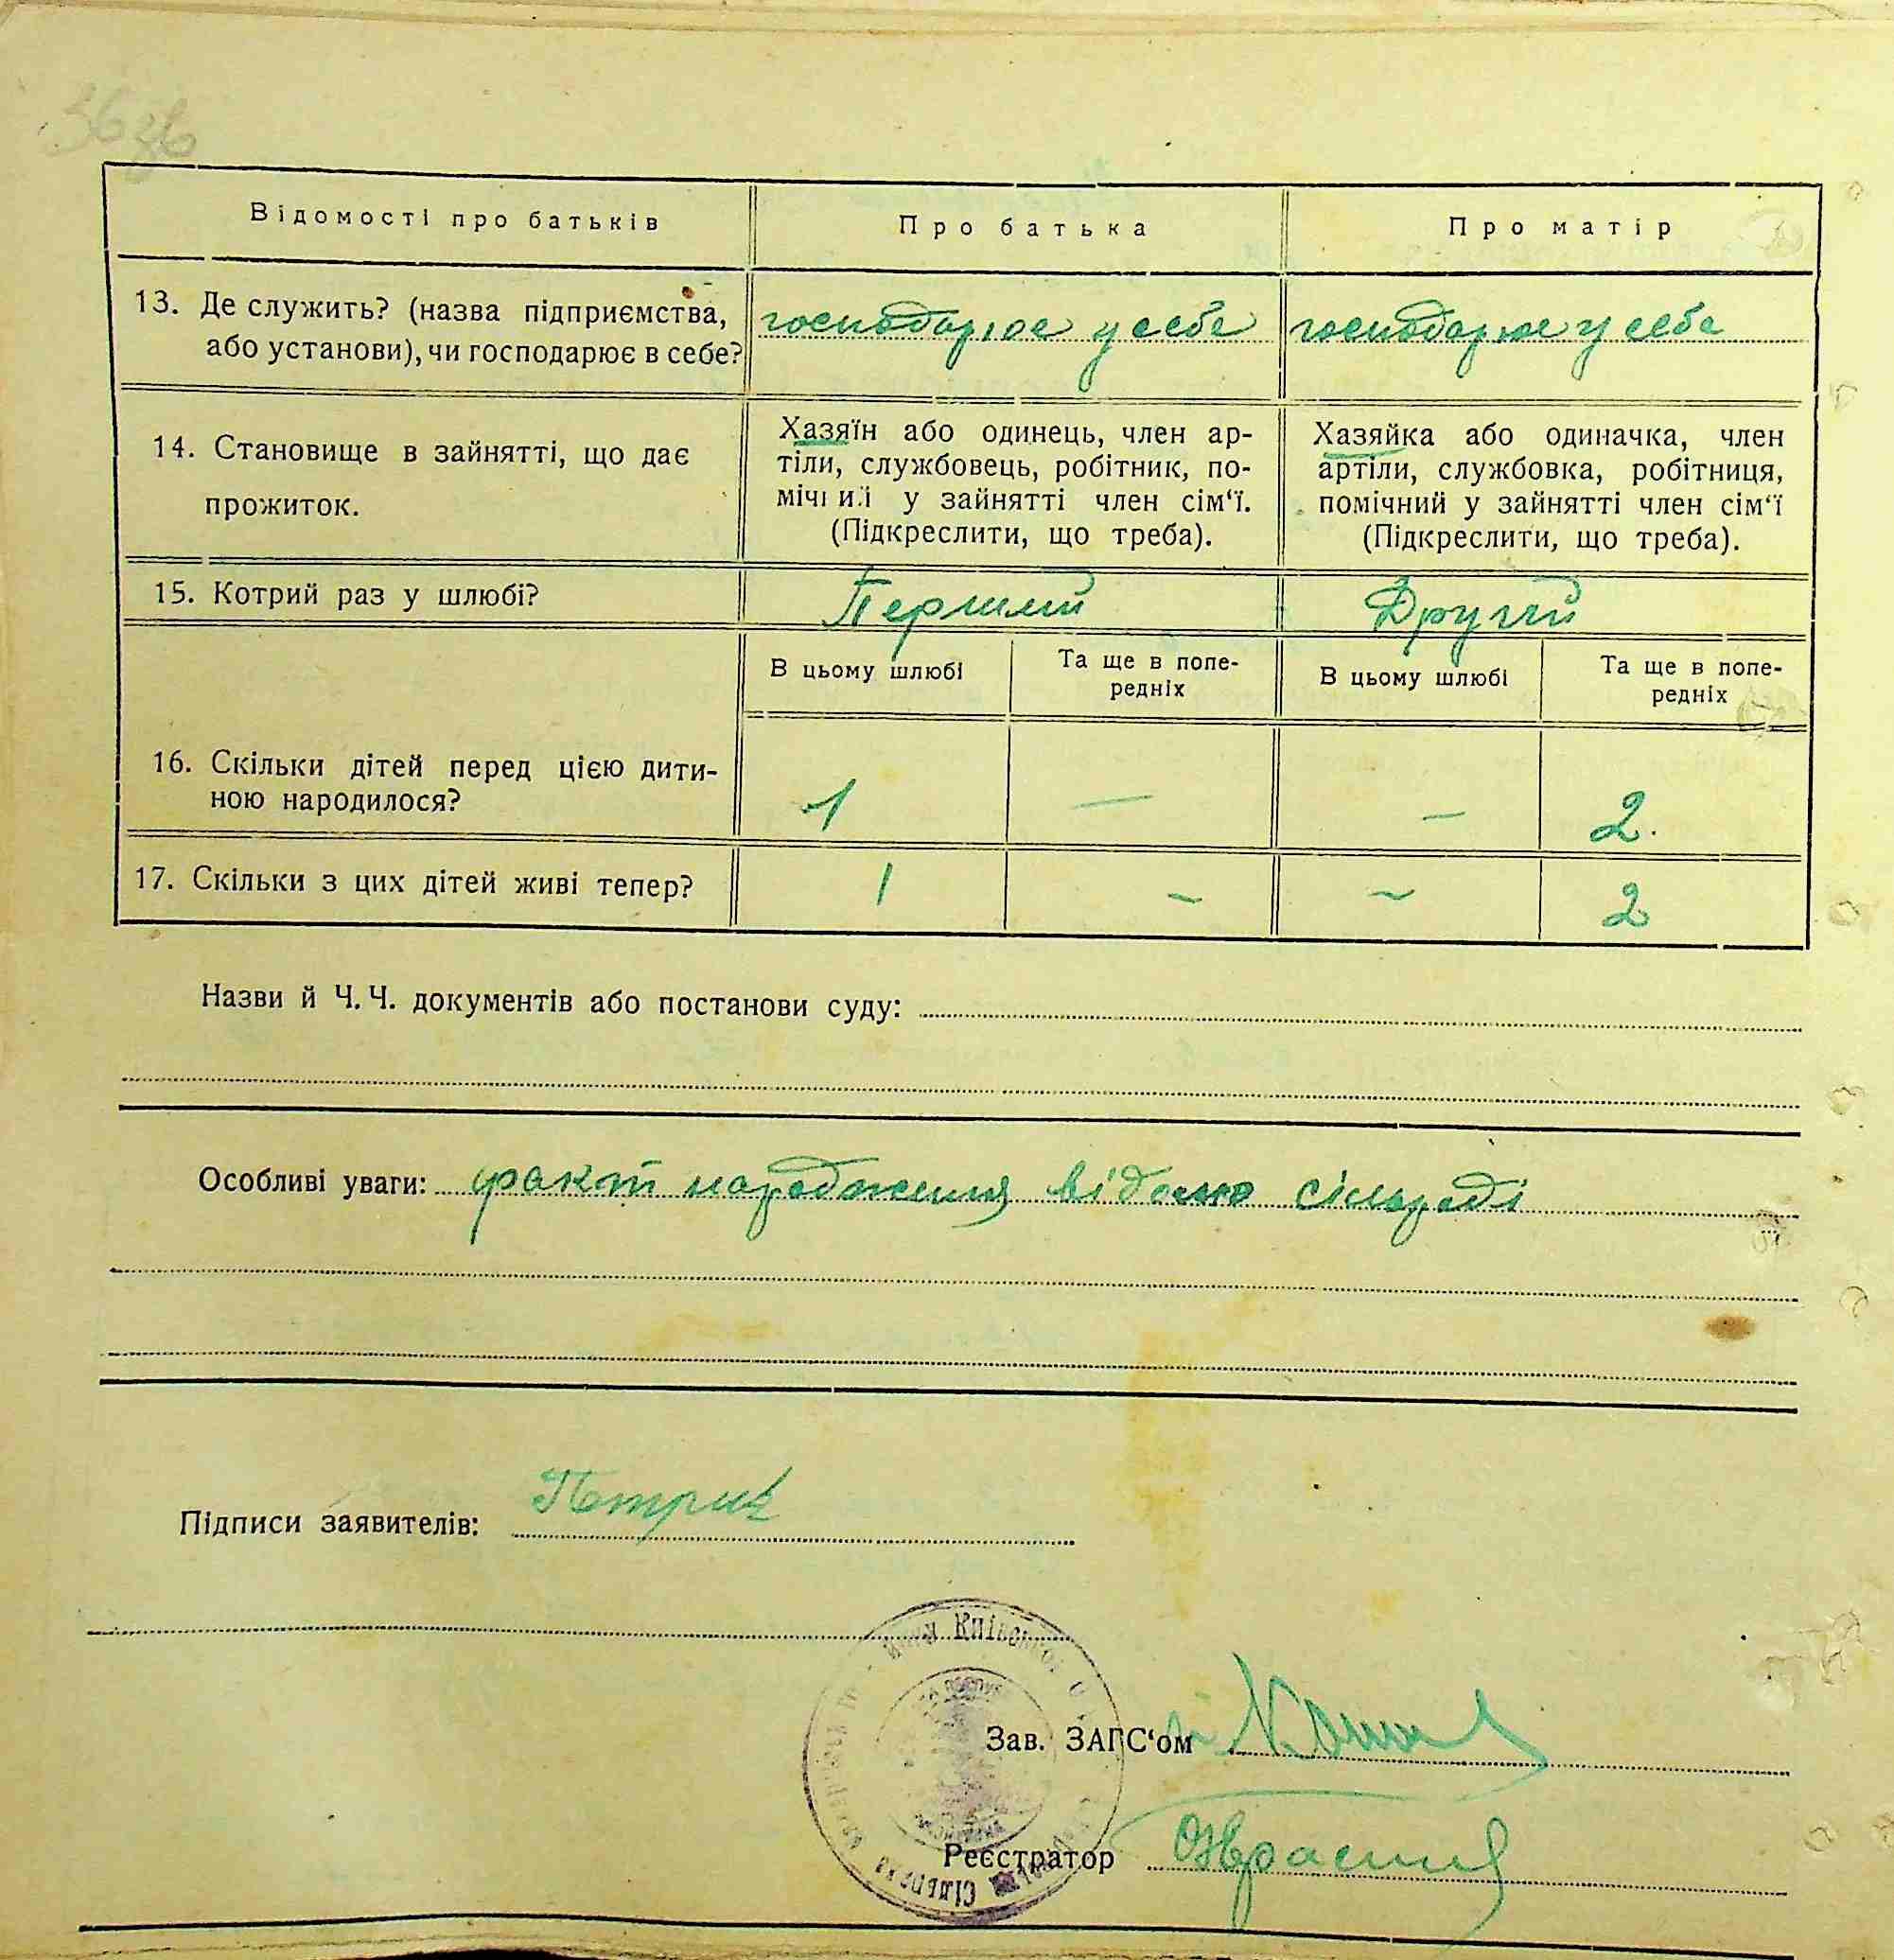 36 зв
Відомості про батьків
Про батька
Про матір
13. Де служить? (назва підприємства,
або установи), чи господарює в себе?
господарює у себе
господарює у себе
14. Становище в зайнятті, що дає
прожиток.
Хазяїн або одинець, член ар-
тіли, службовець, робітник, по-
мічний у зайнятті член сім‘ї.
(Підкреслити, що треба).
Хазяйка або одиначка, член
артіли, службовка, робітниця,
помічний у зайнятті член сім‘ї
(Підкреслити, що треба).
15. Котрий раз у шлюбі?
Перший
Другий
В цьому шлюбі
Та ще в попе-
редніх
В цьому шлюбі
Та ще в попе-
редніх
16. Скільки дітей перед цією дити-
ною народилося?
1
—
—
2.
17. Скільки з цих дітей живі тепер?
1
–
~
2
Назви й Ч. Ч. документів або постанови суду:
Особливі уваги: факт народження відомо сільраді
Підписи заявителів: Петрик
Київської
Сільрада
Зав. ЗАГС‘ом
Реєстратор